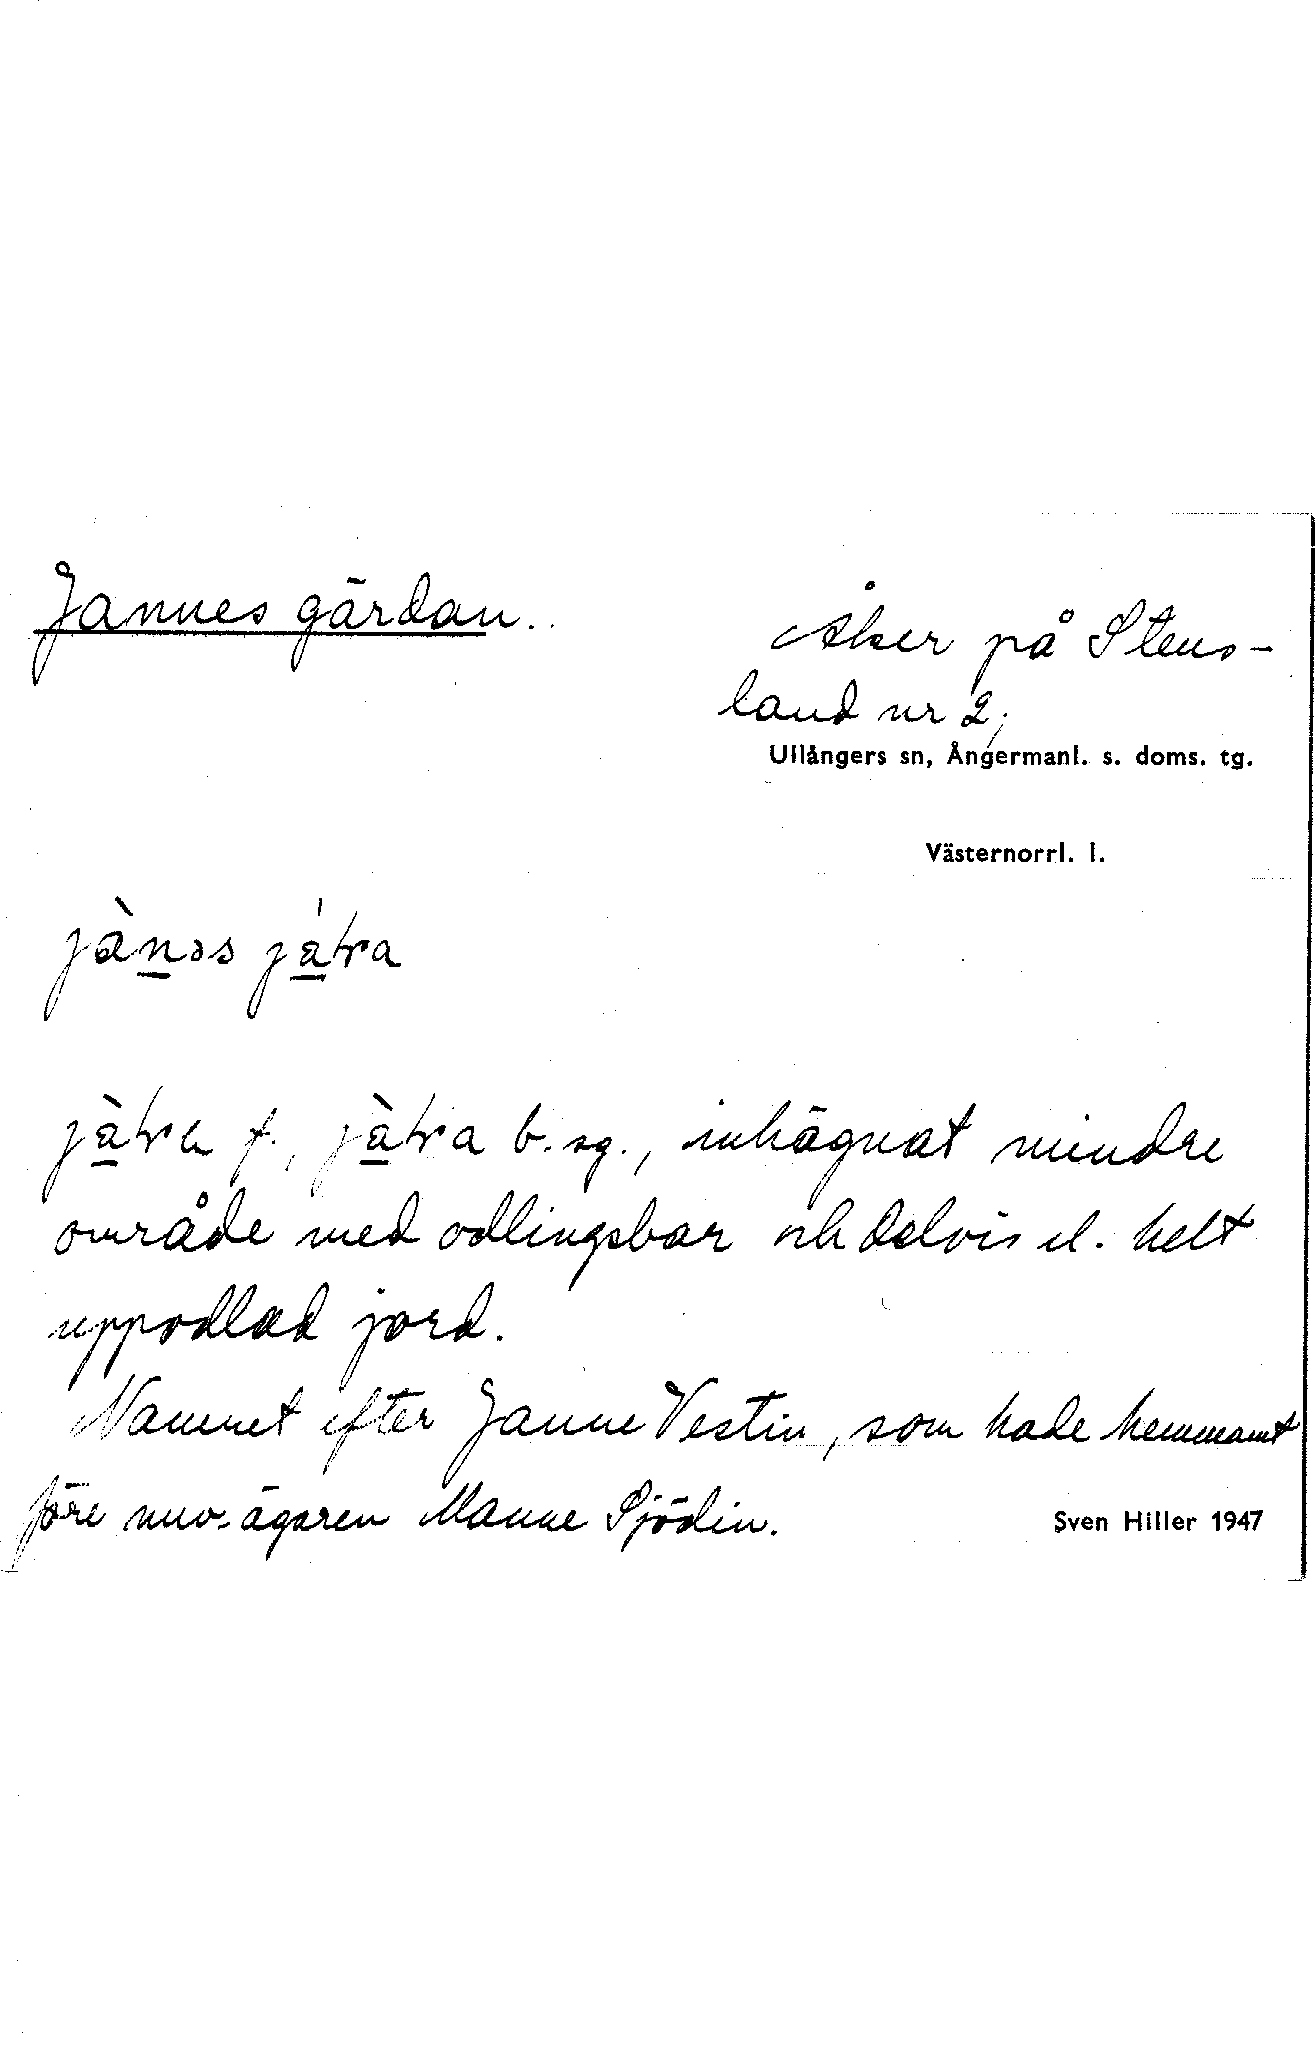 Jannes gärdan.
Åker på Stens-
land nr 2;
Ullångers sn, Ångermanl. s. doms. tg.
Västernorrl. l.
jànəs
f., b. sg., inhägnat mindre
område med odlingsbar och delvis el. helt
uppodlad jord.
Namnet efter Janne Vestin, som hade hemmanet
före nuv. ägaren Manne Sjödin.
Sven Hiller 1947